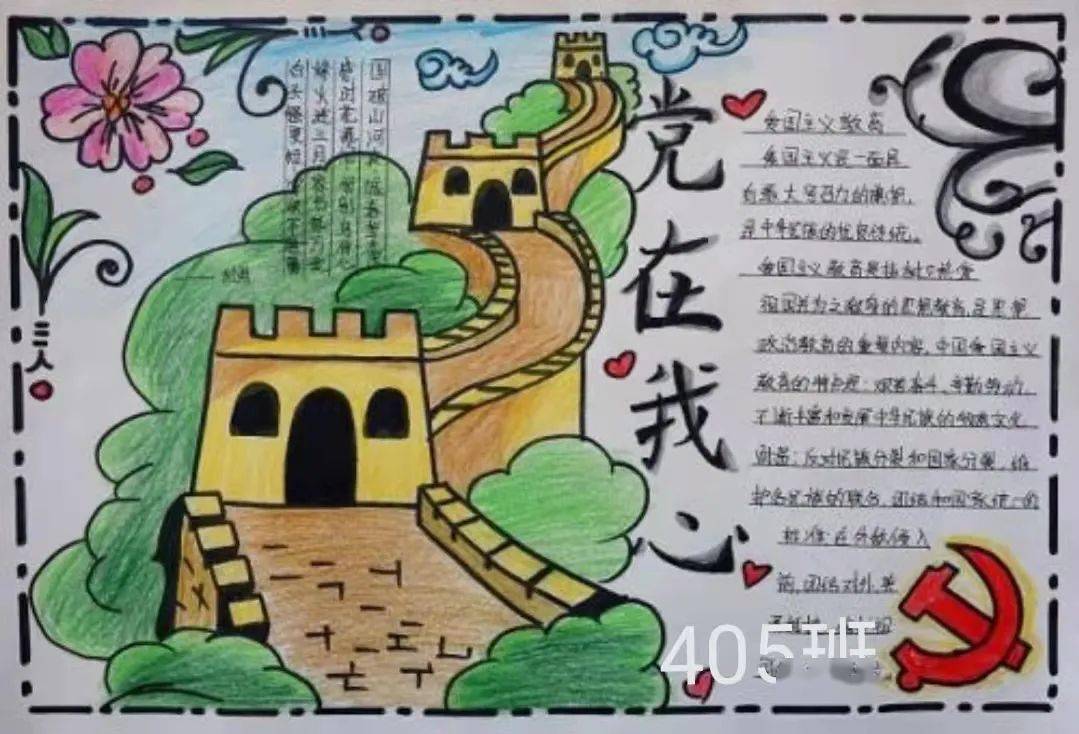 国破山河在 城春草木深
感时花溅泪 恨别鸟惊心
烽火连三月 家书抵万金
白头搔更短 浑欲不胜簪
党在我心
爱国主义教育
爱国主义是一面具
有最大号召力的旗帜,
是中华民族的优良传统。
爱国主义教育是指树立热爱
祖国并为之献身的思想教育,是思想
政治教育的重要内容,中国爱国主义
教育的特点是:艰苦奋斗、辛勤劳动,
不断丰富和发展中华民族的物质文化
财富;反对民族分裂和国家分裂,维
护各民族的联合、团结和国家统一的
在外敌侵入
前,团结对外,英
405班